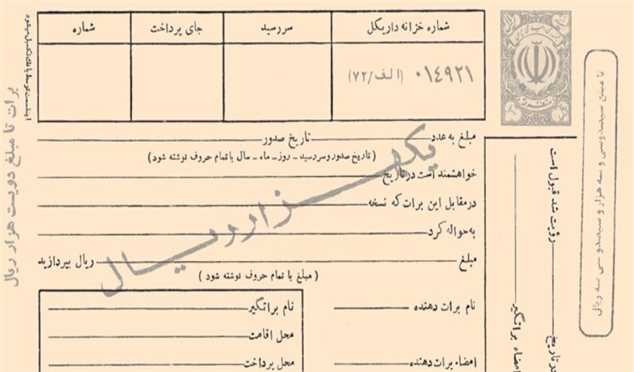 شماره خزانه داریکل
سررسید
جای پرداخت
شماره
۰۱۴۹۲۱ (الف/۷۲)
برات تا مبلغ دویست هزار ریال
تا مبلغ سیصدوسی و سه هزار و سیصدو سی سه ریال
مبلغ به عدد
تاریخ صدور
(تاریخ صدور و سررسید - روز- ماه - سال با تمام حروف نوشته شود)
خواهشمند است در تاریخ
در مقابل این برات که نسخه
به حواله کرد
مبلغ
ریال بپردازید
(مبلغ با تمام حروف نوشته شود)
یکهزار ریال
نام برات دهنده
نام براتگیر
محل اقامت
امضاء برات دهنده
محل پرداخت
رؤیت شد قبول است
در تاریخ
امضاء براتگیر